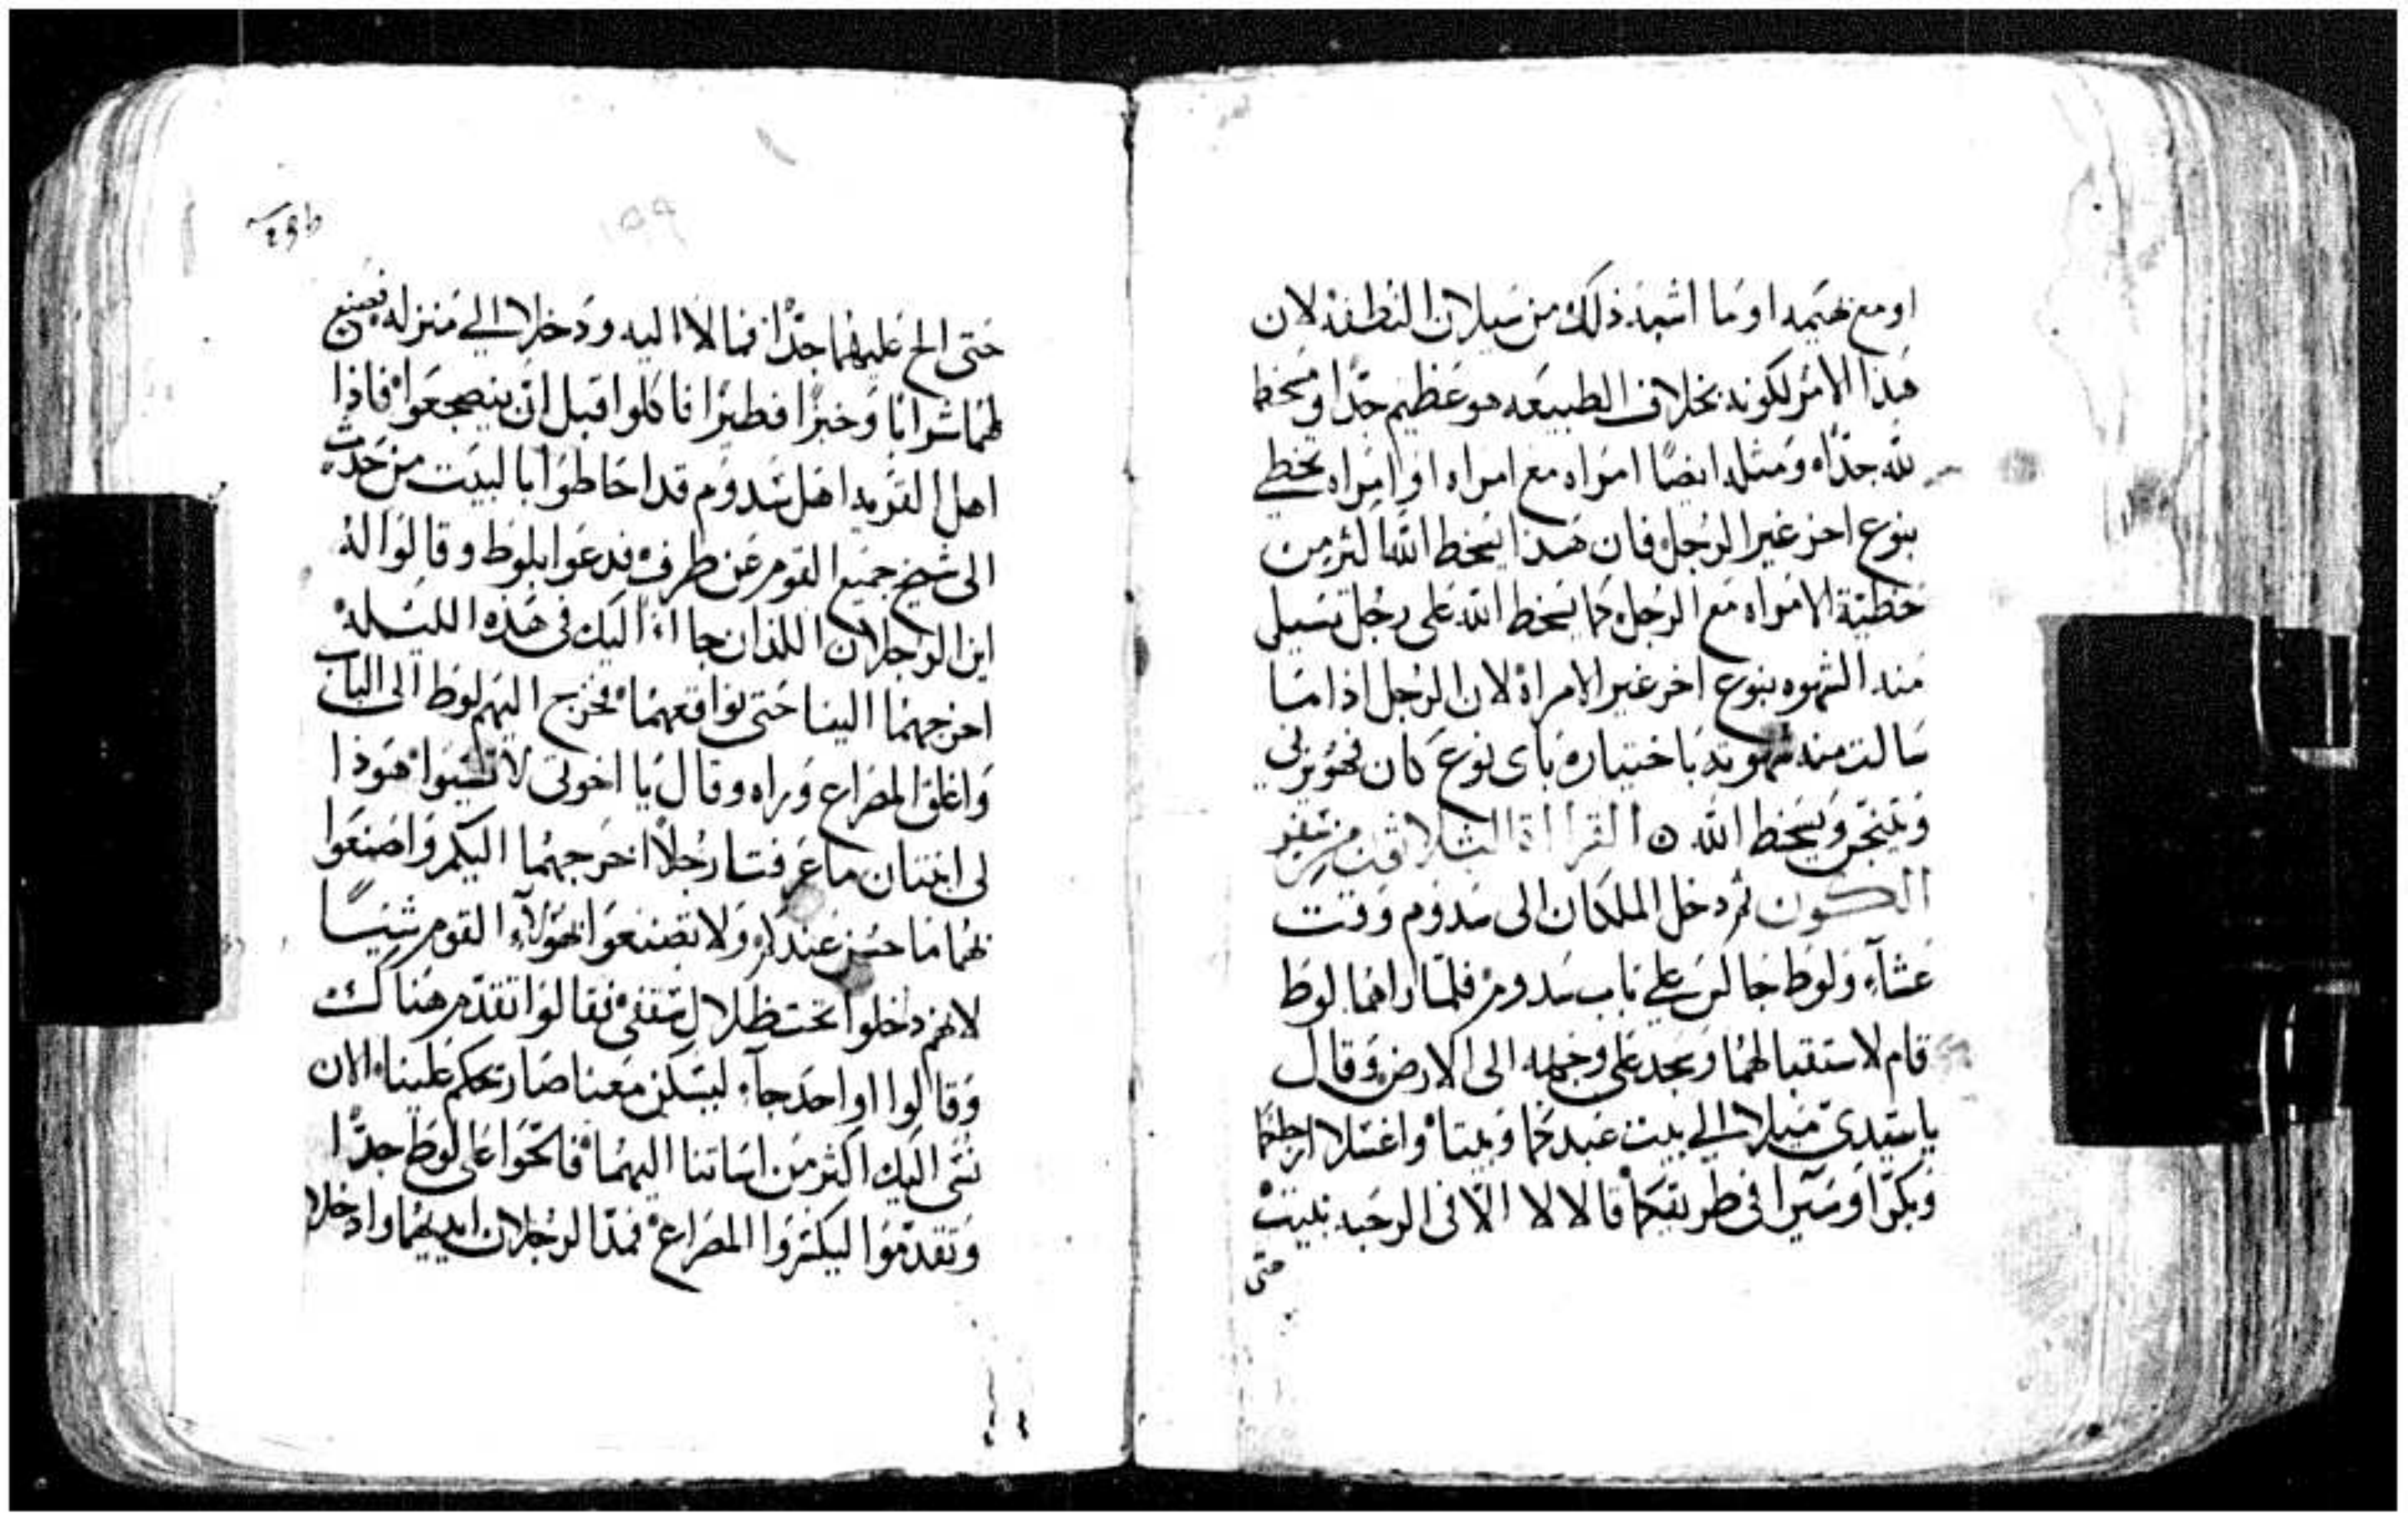 او مع بهيمه او ما اشبه ذلك من سيلان النطفه لان
هذا الامر لكونه بخلاف الطبيعه هو عظيم جدا ومسخط
لله جدا ومثله ايضا امراه مع امراه او امراه تخطي
بنوع اخر غير الرجل فان هذا يسخط الله اكثر من
خطية الامراه مع الرجل كما يسخط الله على رجل تسيل
منه الشهوه بنوع اخر غير الامراة لان الرجل اذا ما
سالت منه شهوته باختياره باى نوع كان فهو يزنى
ويتنجس ويسخط الله ٥ القراأة الثلاثون من سفر
الكون ثم دخل الملكان الى سدوم وقت
عشآء ولوط جالس على باب سدوم فلما راهما لوط
قام لاستقبالهما وسجد على وجهه الى الارض وقال
يا سيدى ميلا الي بيت عبدكما وبيتا واغسلا ارجلكما
وبكرا وسيرا فى طريقكما قالا لا الا فى الرحبه نبيت
حتى
١٥٩
حتى الح عليهما جدا فمالا اليه ودخلا الي منزله فصنع
لهما شرابا وخبزا فطيرا فاكلوا قبل ان ينضجعوا فاذا
اهل القريه اهل سدوم قد احاطوا بالبيت من حدث
الى شيخ جميع القوم عن طرف فدعوا بلوط وقالوا له
اين الرجلان اللذان جاآ اليك فى هذه الليله
اخرجهما الينا حتى نواقعهما فخرج اليهم لوط الى الباب
واغلق المصراع وراه وقال يا اخوتى لا تسيوا هوذا
لى ابنتان ما عرفتا رجلا اخرجهما اليكم واصنعوا
بهما ما حسن عندكم ولا تصنعوا بهولآء القوم شيسا
لانهم دخلوا تحت ظلال سقفى فقالوا تقدم هناك
وقالوا او احد جآء ليسكن معنا صار يحكم علينا الان
نسى اليك اكثر من اساتنا اليهما فالحوا على لوط جدا
وتقدموا ليكسروا المصراع فمد الرجلان ايديهما وادخلا